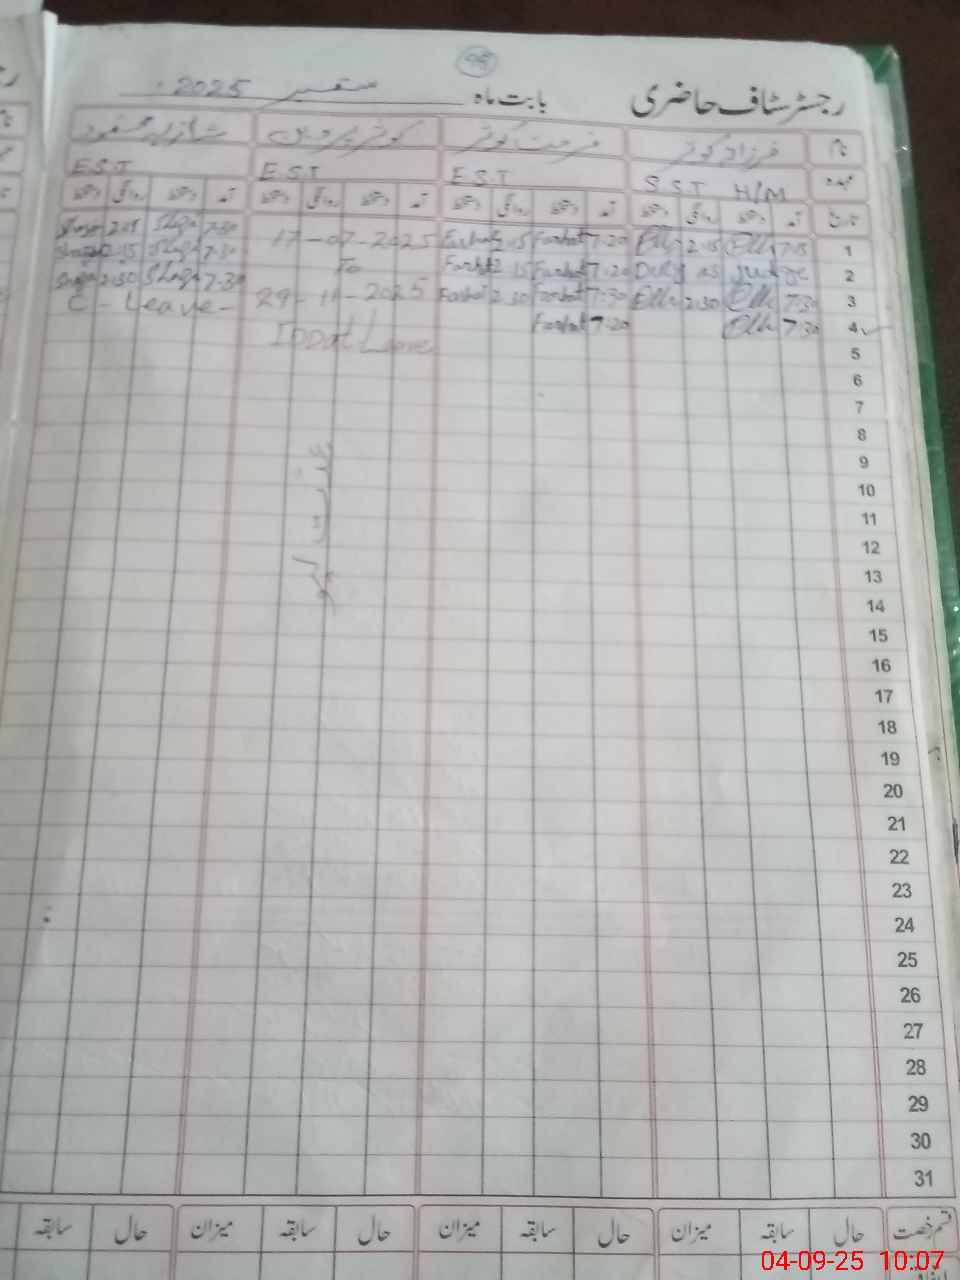 95
رجسٹر سٹاف حاضری بابت ماہ ستمبر 2025
نام فرزانہ کوثر فرحت کوثر کوثر پروین شازیہ مسعود
عہدہ S.S.T H/M E.S.T E.S.T E.S.T
تاریخ آمد دستخط روانگی دستخط آمد دستخط روانگی دستخط آمد دستخط روانگی دستخط آمد دستخط روانگی دستخط
2.15 7.30 17-07-2025 Farhat 2.15 Farhat 7.20 2.15 7.15 1
2.15 7.30 To Farhat 2.15 Farhat 7.20 Duty as judge 2
2.30 7.30 29-11-2025 Farhat 2.30 Farhat 7.30 2.30 7.30 3
C-Leave- Farhat 7.20 7.30 4
Iddat Leave
5
6
7
8
9
10
11
12
13
14
15
16
17
18
19
20
21
22
23
24
25
26
27
28
29
30
31
قسم رخصت حال سابقہ میزان حال سابقہ میزان حال سابقہ میزان حال سابقہ
04-09-25 10:07